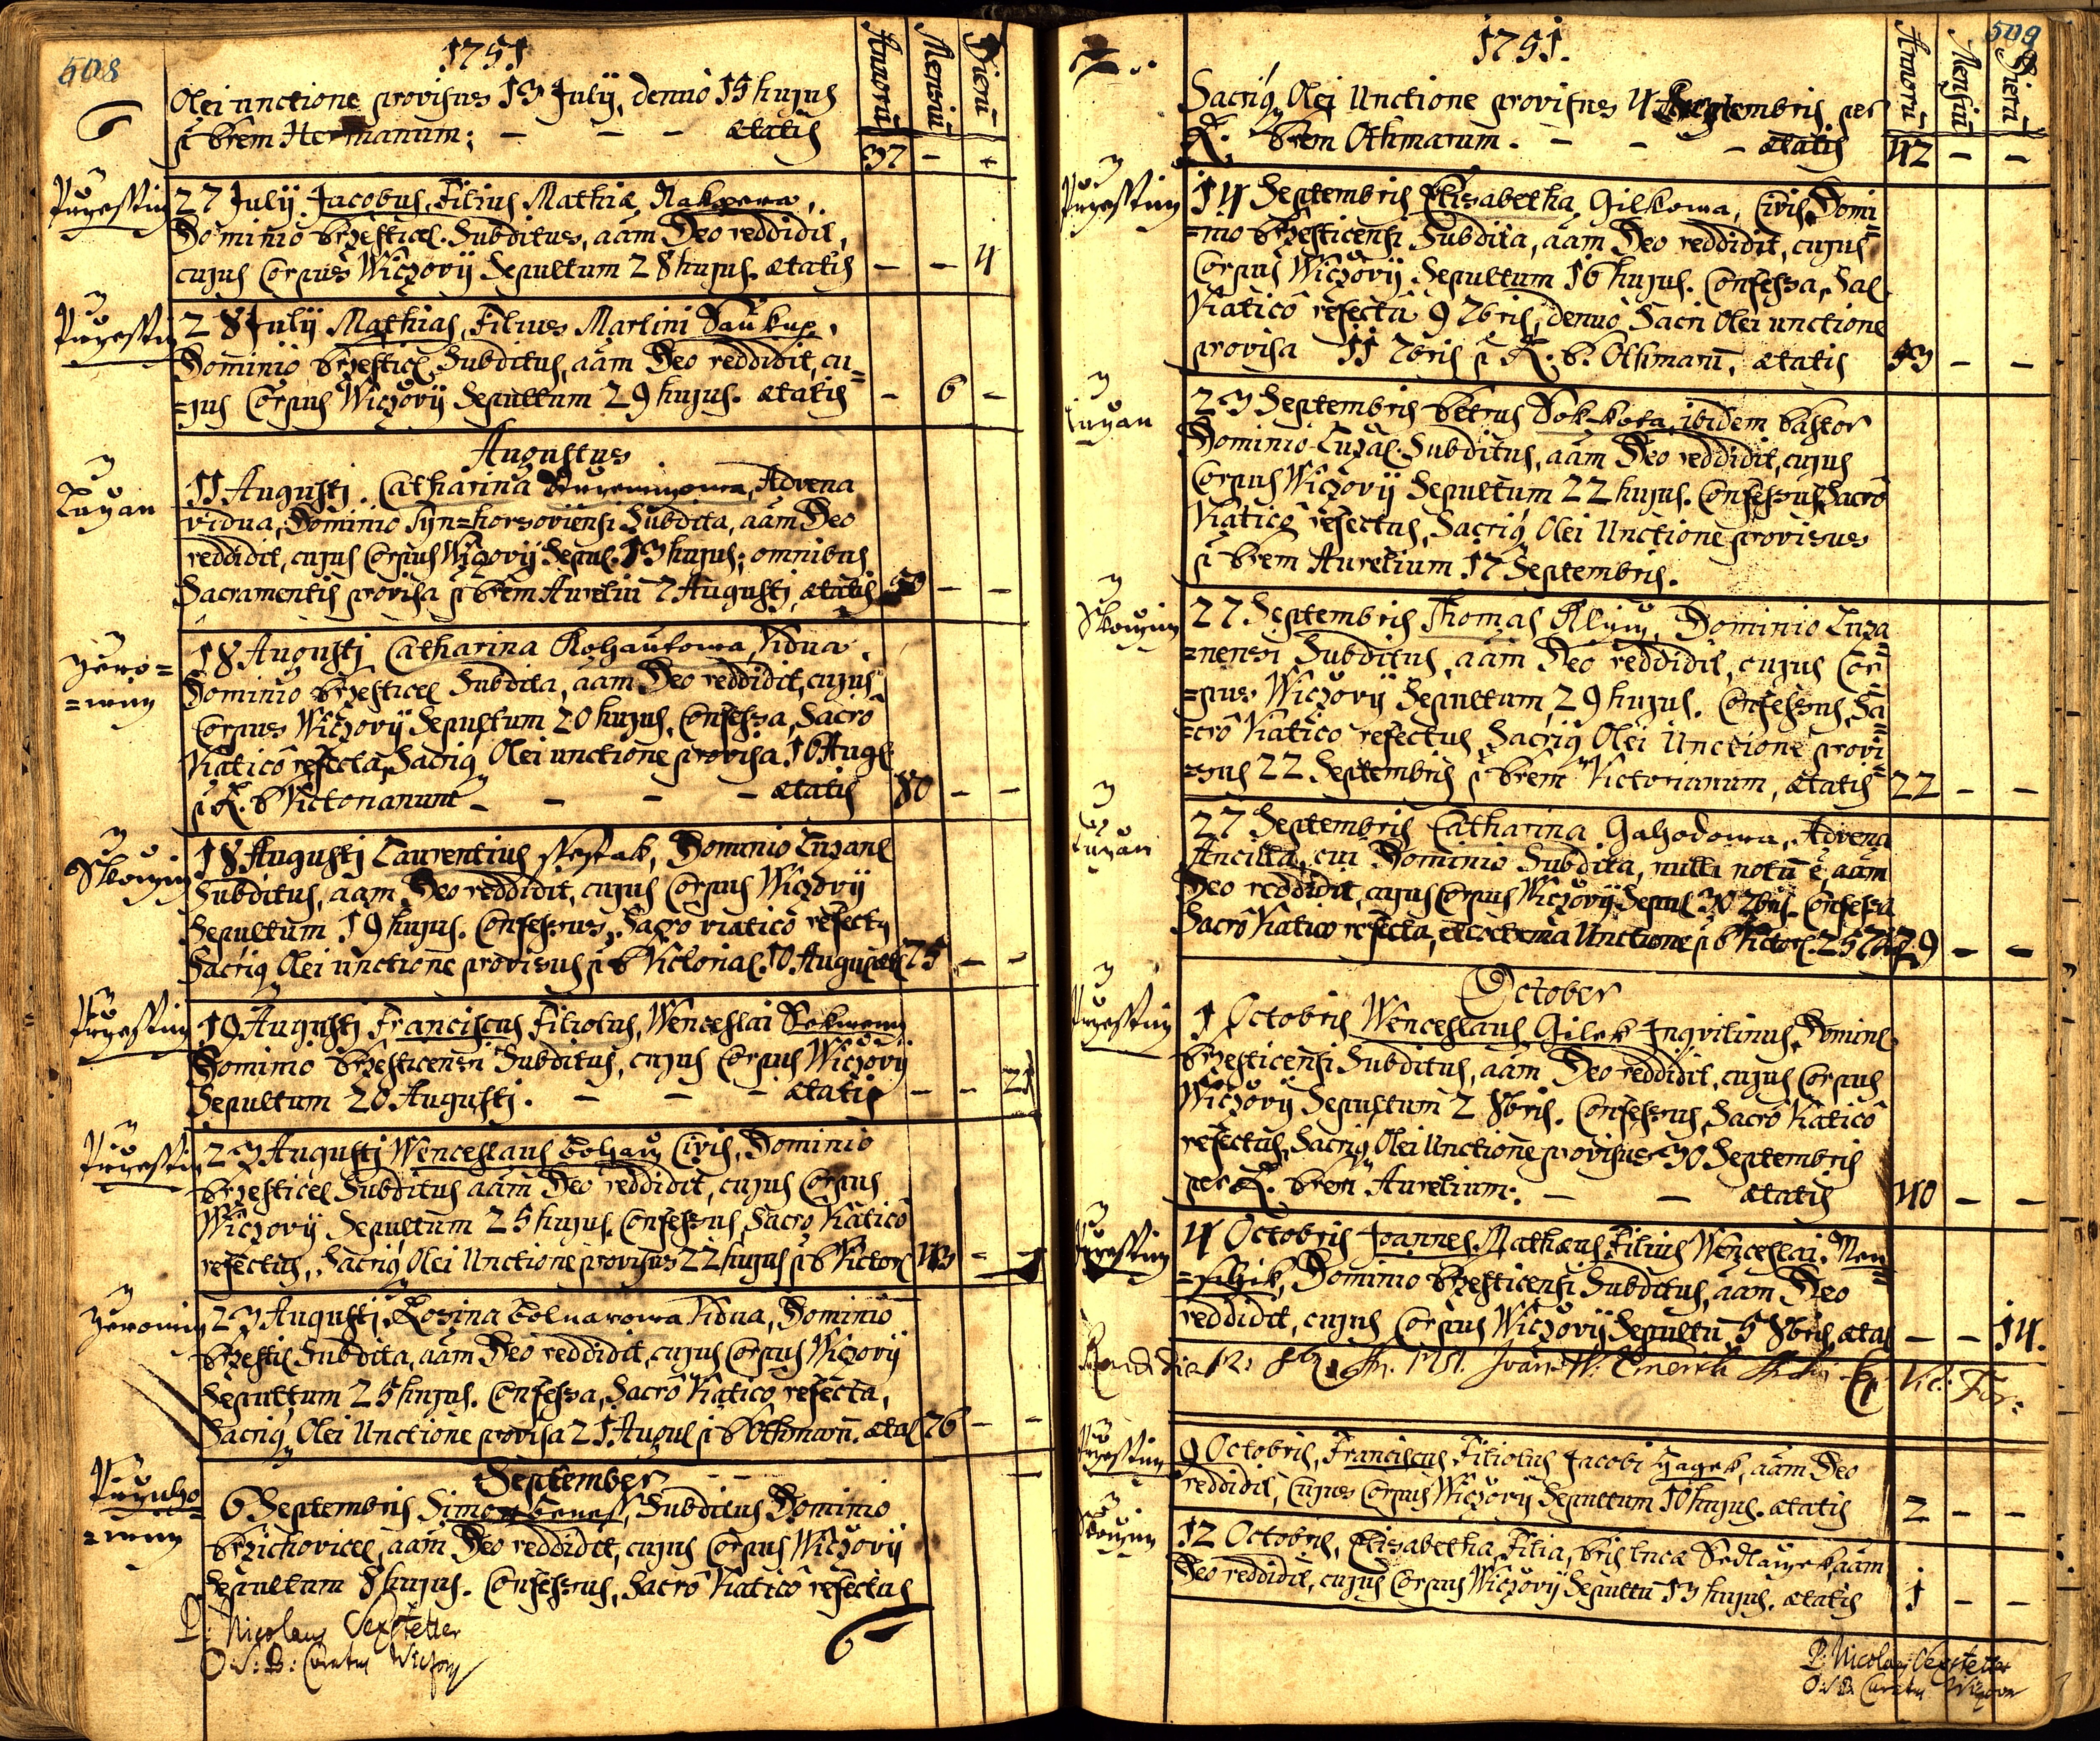 508
1751
Annorū Mensiū Dierū
Olei unctione provisus 13 Julij, denuo 15 hujus
p Prem Hermanum; - - - ætatis 37 - -
27 Julij Jacobus, Filius Mathiæ Nakrera,
Dominio Przesticel. Subditus, aam Deo reddidit,
cujus Corpus Wiczovij Sepultum 28 hujus. ætatis - - 4
28 Julij Mathias, Filius Martini Saukup,
Dominio Przesticl Subditus, aam Deo reddidit, cu=
=jus Corpus Wiczovij Sepultum 29 hujus. ætatis - 6 -
Augustus
Luzan
11 Augusti. Catharina Advena
vidua, Dominio Subdita, aam Deo
reddidit, cujus Corpus Wiczovij Sepul. 13 hujus; omnibus
Sacramentis provisa p Prem Aureliū 7 Augusti, ætatis 59 - -
Zero=
=win
18 Augusti Catharina Kohautowa, Vidua,
Dominio Przesticel Subdita, aam Deo reddidit, cujus
Corpus Wiczovij Sepultum 20 hujus, Confessa, Sacro
Viaticô refecta, Sacriq Olei unctione provisa 16 Augl
p R. P. Victorianum - - - - ætatis 80 - -
Skoczin
18 Augusti Laurentius Dominio Luzanl
Subditus, aam Deo reddidit, cujus Corpus Wiczovij
Sepultum 19 hujus. Confessus, Sacro viaticô refectq
Sacriq Olei unctione provisus p P Victorial. 10 Augusti 75 - -
19 Augusti Franciscus Filiolus, Wenceslai
Dominio Przesticensi Subditus, cujus Corpus Wiczovij
Sepultum 20 Augusti. - - - ætatis - - 21
23 Augusti Wenceslaus Civis, Dominio
Przesticel Subditus aam Deo reddidit, cujus Corpus
Wiczovij Sepultum 25 hujus. Confessus, Sacro Viaticô
refectus, Sacriq Olei Unctione provisus 22 hujus p P Victorl 43 - -
Zeromin
23 Augusti, Rosina Vidua, Dominio
Przestil Subdita, aam Deo reddidit, cujus Corpus Wiczovij
Sepultum 25 hujus. Confessa, Sacrô Viaticô refecta,
Sacriq Olei Unctione provisa 21 Augul p P Othmarū. ætal 76 - -
September
6 Septembris Simon Benes, Subditus Dominio
Przichovicel, aam Deo reddidit, cujus Corpus Wiczovij
Sepultum 8 hujus. Confessus, Sacrô Viaticô refectus
P: Nicolaus
O: S: B: Curatus Wiczov
509
1751.
Annorū Mensiū Dierū
Sacriq Olei Unctione provisus 4 Septembris per
R. Prem Othmarum. - - - ætatis 42 - -
14 Septembris Elisabetha Gilkowa, Civis, Domi=
=nio Przesticensi Subdita, aam Deo reddidit, cujus
Corpus Wiczovij Sepultum 16 hujus. Confessa, Sal
Viaticô refecta 9 7bris, denuo Sacri Olei unctione
provisa 11 7bris p R. P. Othmarū, ætatis 53 - -
Luzan
23 Septembris Petrus ibidem Pastor
Dominio Luzal. Subditus, aam Deo reddidit, cujus
Corpus Wiczovij Sepultum 22 hujus. Confessus, Sacrô
Viaticô refectus, Sacriq Olei Unctione provisus
p Prem Aurelium 17 Septembris.
Skoczin
27 Septembris Thomas Dominio Luza
=nensi Subditus, aam Deo reddidit, cujus Cor
=pus Wiczovij Sepultum, 29 hujus. Confessus, Sa=
=crô Viatico refectus, Sacriq Olei Unctione provi=
=sus 22 Septembris p Prem Victorianum, ætatis 22 - -
Luzan
27 Septembris Catharina Advena
Ancilla, cui Dominio Subdita, nulli notū ē, aam
Deo reddidit, cujus Corpus Wiczovij Sepul 30 7bris. Confessa
Sacrô Viatico refecta, extrema Unctione p P Victorl. 25 29 - -
October
1 Octobris Wenceslaus Gilek Inqvilinus, Dominl
Przesticensi Subditus, aam Deo reddidit, cujus Corpus
Wiczovij Sepultum 2 8bris. Confessus, Sacrô Viaticô
refectus, Sacriq Olei Unctione provisus 30 Septembris
per R. Prem Aurelium. - - ætatis 40 - -
4 Octobris Joannes Mathæus, Filius Wenceslai
Dominio Przesticensi Subditus, aam Deo
reddidit, cujus Corpus Wiczovij Sepultū 5 8bris, ætal - - 14.
1751. Vic: For:
9 Octobris, Franciscus Filiolus Jacobi Hagek, aam Deo
reddidit, Cujus Corpus Wiczovij Sepultum 10 hujus. ætatis 2 - -
Skoczin
12 Octobris, Elisabetha, Filia, Lucæ Sedlaczek, aam
Deo reddidit, cujus Corpus Wiczovij Sepultū 13 hujus. ætatis 1 - -
P: Nicolaus
O: S: B: Curatus Wiczov